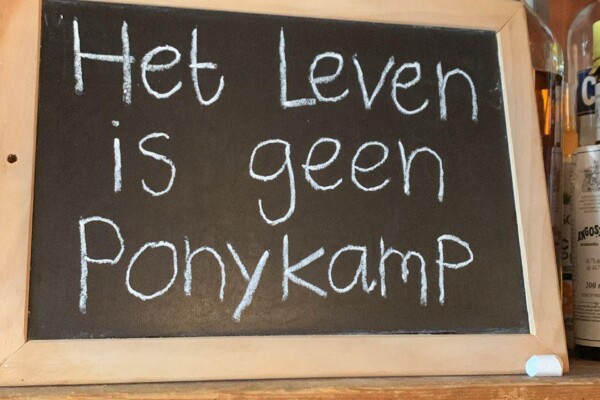 Het Leven
is geen
Ponykamp